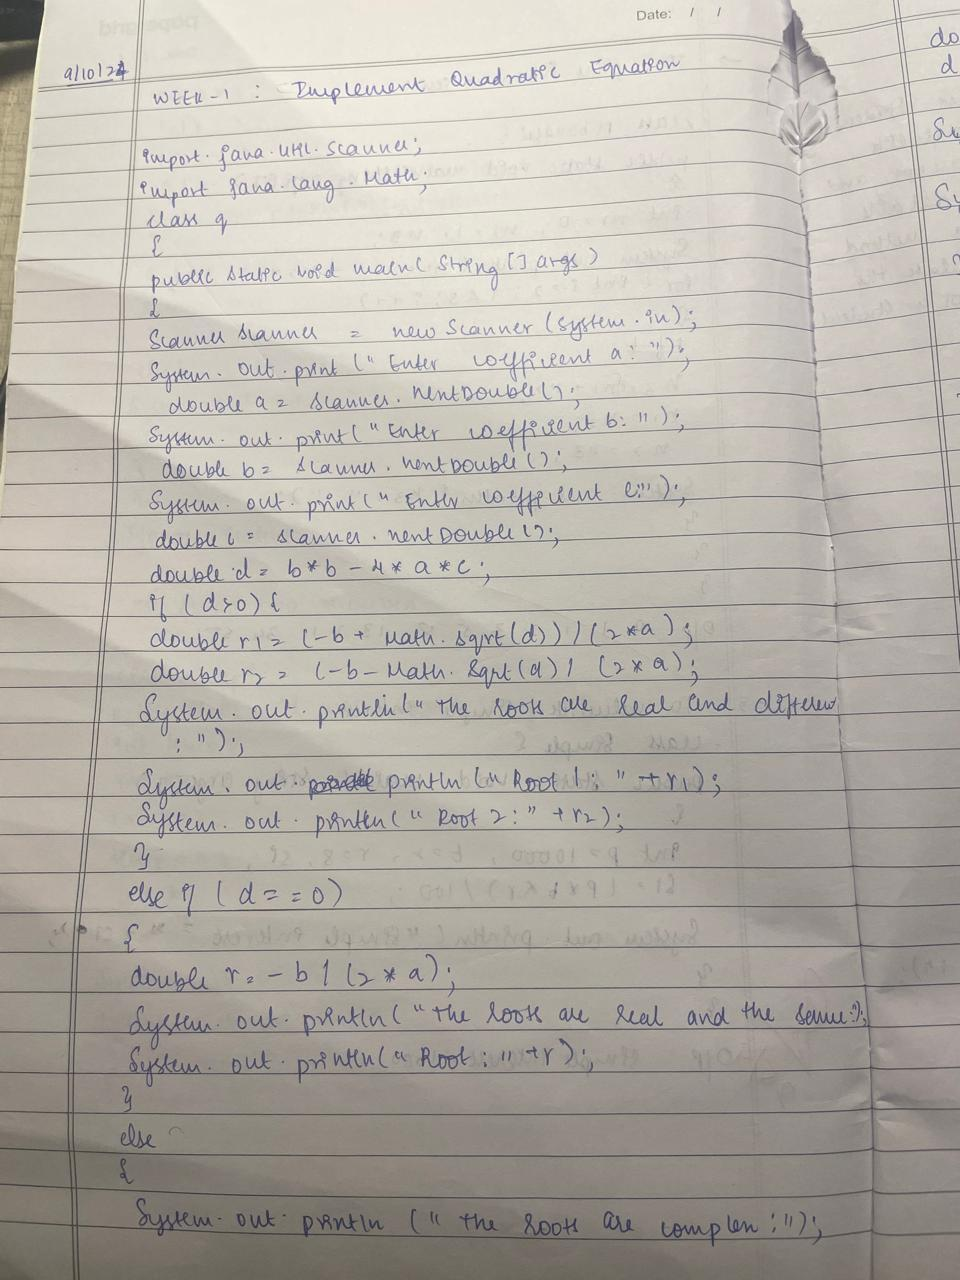 Date: / /
9/10/24
WEEK-1 : Implement Quadratic Equation
import java.util.Scanner;
import java.lang.Math;
class q
{
public static void main( String [] args)
{
Scanner scanner = new Scanner (System.in);
System.out.print (" Enter coefficient a: ");
double a = scanner.nextDouble();
System.out.print(" Enter coefficient b: ");
double b = scanner.nextDouble();
System.out.print(" Enter coefficient c:");
double c = scanner.nextDouble();
double d = b*b - 4* a *c;
if (d>0) {
double r1 = (-b + Math.sqrt(d)) / (2*a);
double r2 = (-b - Math.sqrt(d) / (2*a);
System.out.println(" The roots are real and different
: ");
System.out. println (" Root 1: " +r1);
System.out.println(" Root 2:" +r2);
}
else if (d==0)
{
double r = -b / (2*a);
System.out.println(" The roots are real and the same:");
System.out.println(" Root : " +r);
}
else
{
System.out.println (" The roots are complex :");
do
d
Sy
Sy